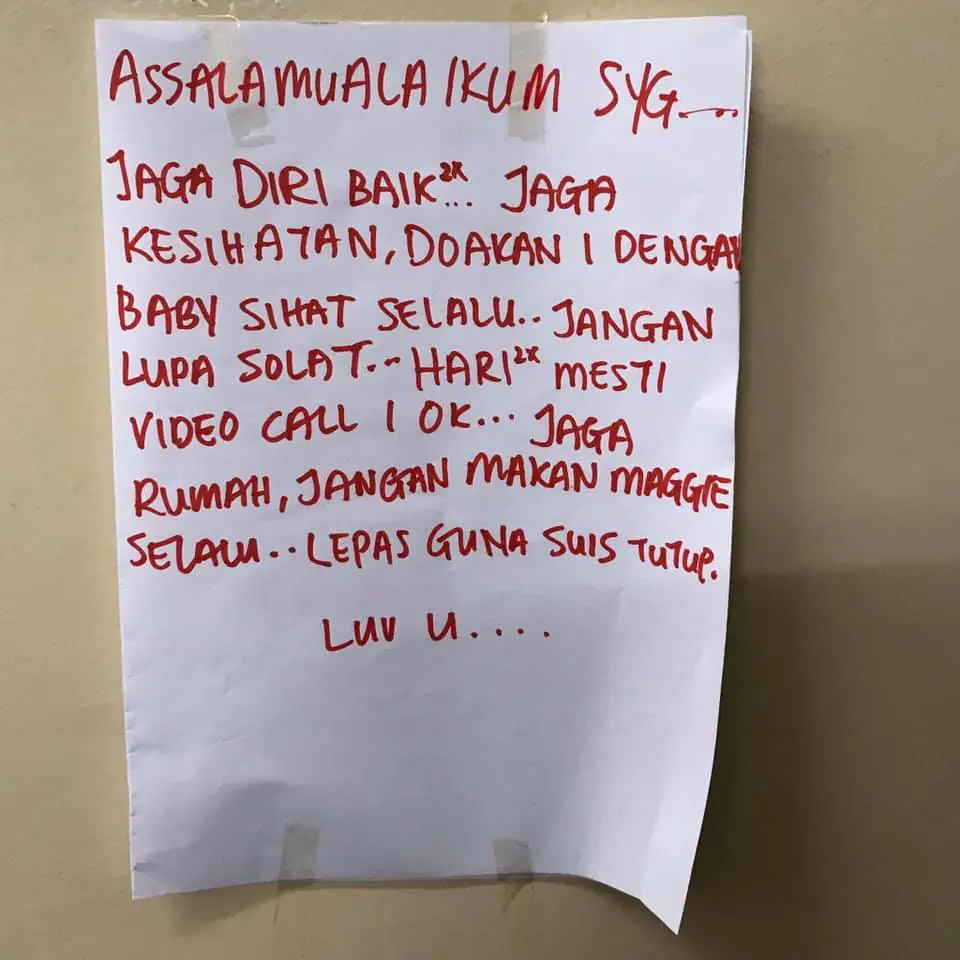 ASSALAMUALAIKUM SYG....
JAGA DIRI BAIK2X... JAGA
KESIHATAN, DOAKAN I DENGAN
BABY SIHAT SELALU.. JANGAN
LUPA SOLAT.. HARI2X MESTI
VIDEO CALL I OK... JAGA
RUMAH, JANGAN MAKAN MAGGIE
SELALU.. LEPAS GUNA SUIS TUTUP.
LUV U....